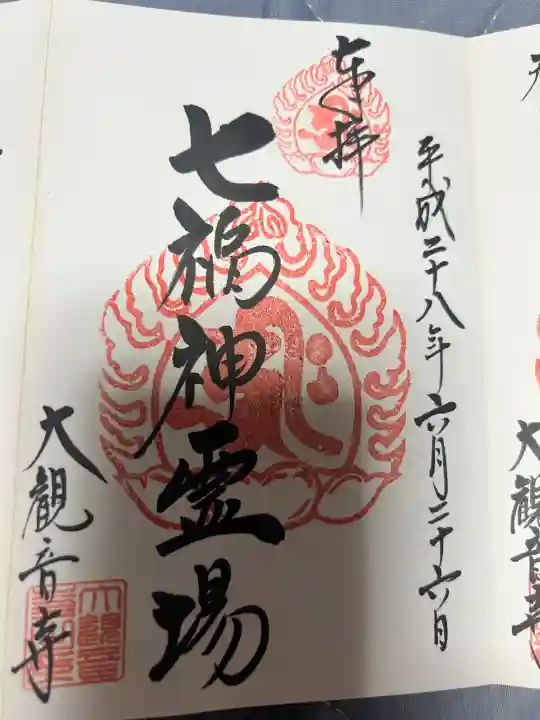 奉拝
平成二十八年六月二十六日
七福神霊場
大観音寺
大観音寺